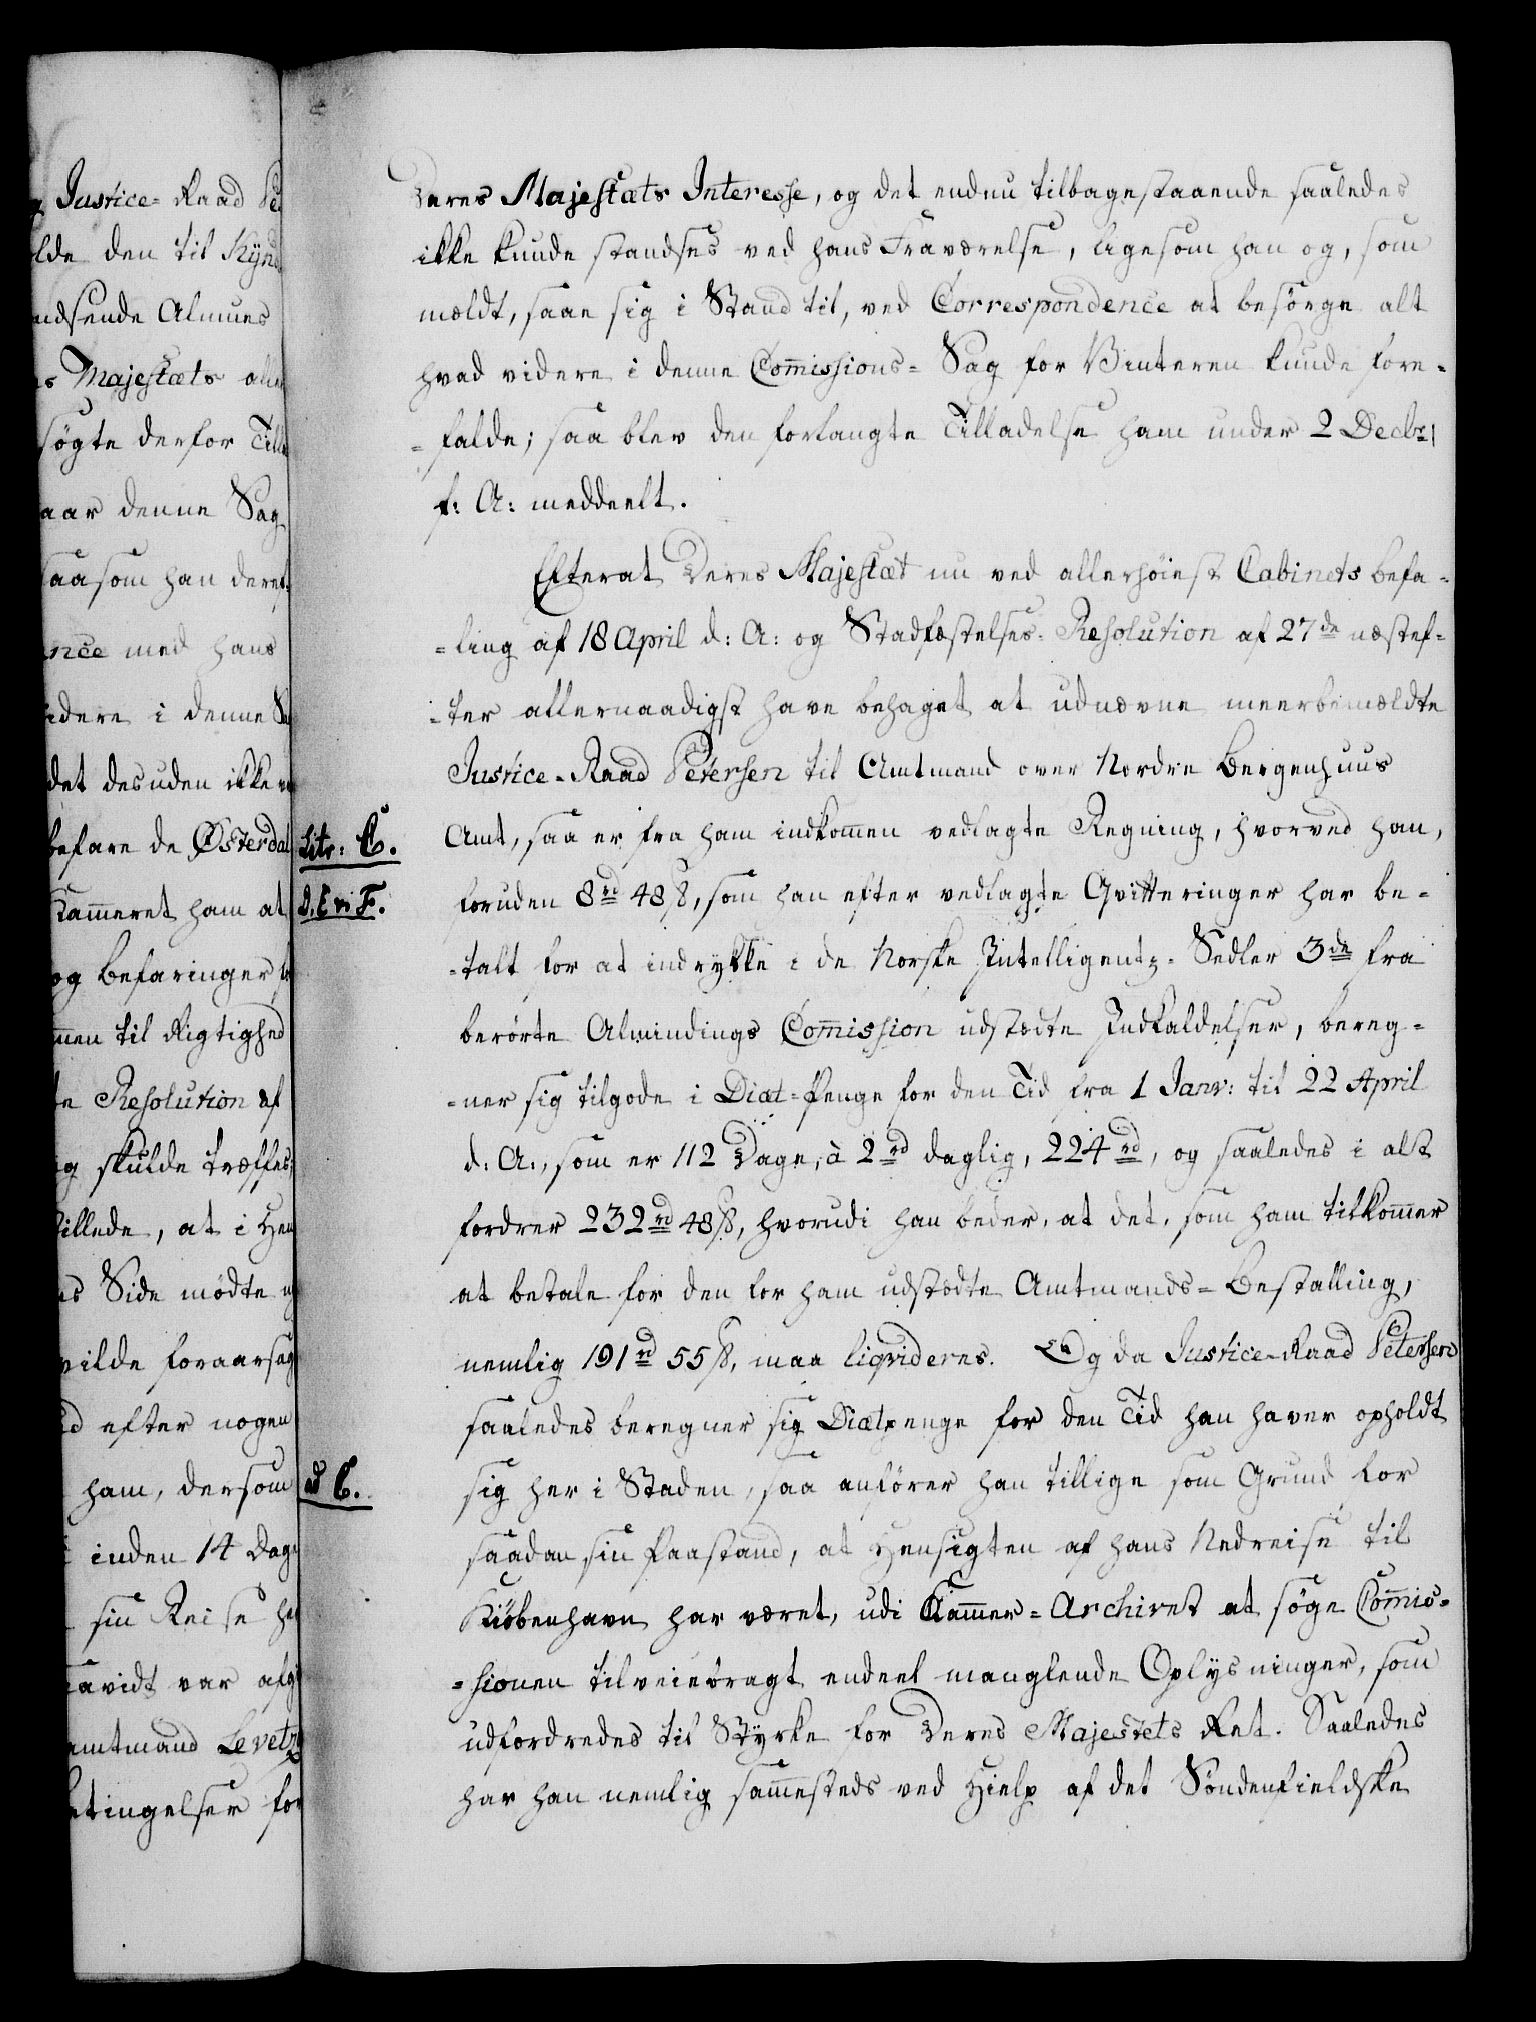 Justice-Raad Pe
olde den til Kynd
indsende Almues
s Majestæts aller
søgte derfor Tilla
aar denne Sag
saasom han deref-
nce med hans
videre i denne Sa
det desuden ikke
befare de Østerdal
Kam̄eret ham at
og Befaringer
men til Rigtighed
te Resolution af
g skulde træffes;
stillede, at i Hen
s Side mödte
vilde foraarsag
d efter nogen
ham, dersom
inden 14 Dage
sin Reise
saavidt var afg
amtmand Levetz
betingelser for
Deres Majestæts Interesse, og det endnu tilbagestaaende saaledes
ikke kunde standses ved hans Fraværelse, ligesom han og, som
mældt, saae sig i Stand til, ved Correspondence at besörge alt
hvad videre i denne Com̄issions-Sag for Vinteren kunde fore-
-falde; saa blev den forlangte Tilladelse ham under 2 Decbr
f: A: meddeelt.
Efterat Deres Majestæt nu ved allerhöiest Cabinets befa-
-ling af 18 April d: A: og Stadfæstelses-Resolution af 27de næstef-
-ter allernaadigst have behaget at udnævne meerbemældte
Justice-Raad Petersen til Amtmand over Nordre Bergenhuus
Litr: C.
Amt, saa er fra ham indkom̄en vedlagte Regning, hvorved han,
D, E og F.
foruden 8 rd 48 ß, som han efter vedlagte Qvitteringer har be-
-talt for at indrykke i de Norske Intelligentz-Sedler 3de fra
berörte Almindings Com̄ission udstædte Indkaldelser, bereg-
-ner sig tilgode i Diæt-Penge for den Tid fra 1 Janv: til 22 April
d: A:, som er 112 Dage, à 2 rd daglig, 224 rd, og saaledes i alt
fordrer 232 rd 48 ß, hvorudi han beder, at det, som ham tilkom̄er
at betale for den for ham udstædte Amtmands-Bestalling,
nemlig 191 rd 55 ß, maa liqvideres. Og da Justice-Raad Petersen
saaledes beregner sig Diætpenge for den Tid han haver opholdt
ad C.
sig her i Staden, saa anförer han tillige som Grund for
saadan sin Paastand, at Hensigten af hans Nedreise til
Kiöbenhavn har været, udi Kam̄er-Archivet at söge Com̄is-
-sionen tilveiebragt endeel manglende Oplysninger, som
udfordredes til Styrke for Deres Majestets Ret. Saaledes
har han nemlig sam̄esteds ved Hielp af det Söndenfieldske